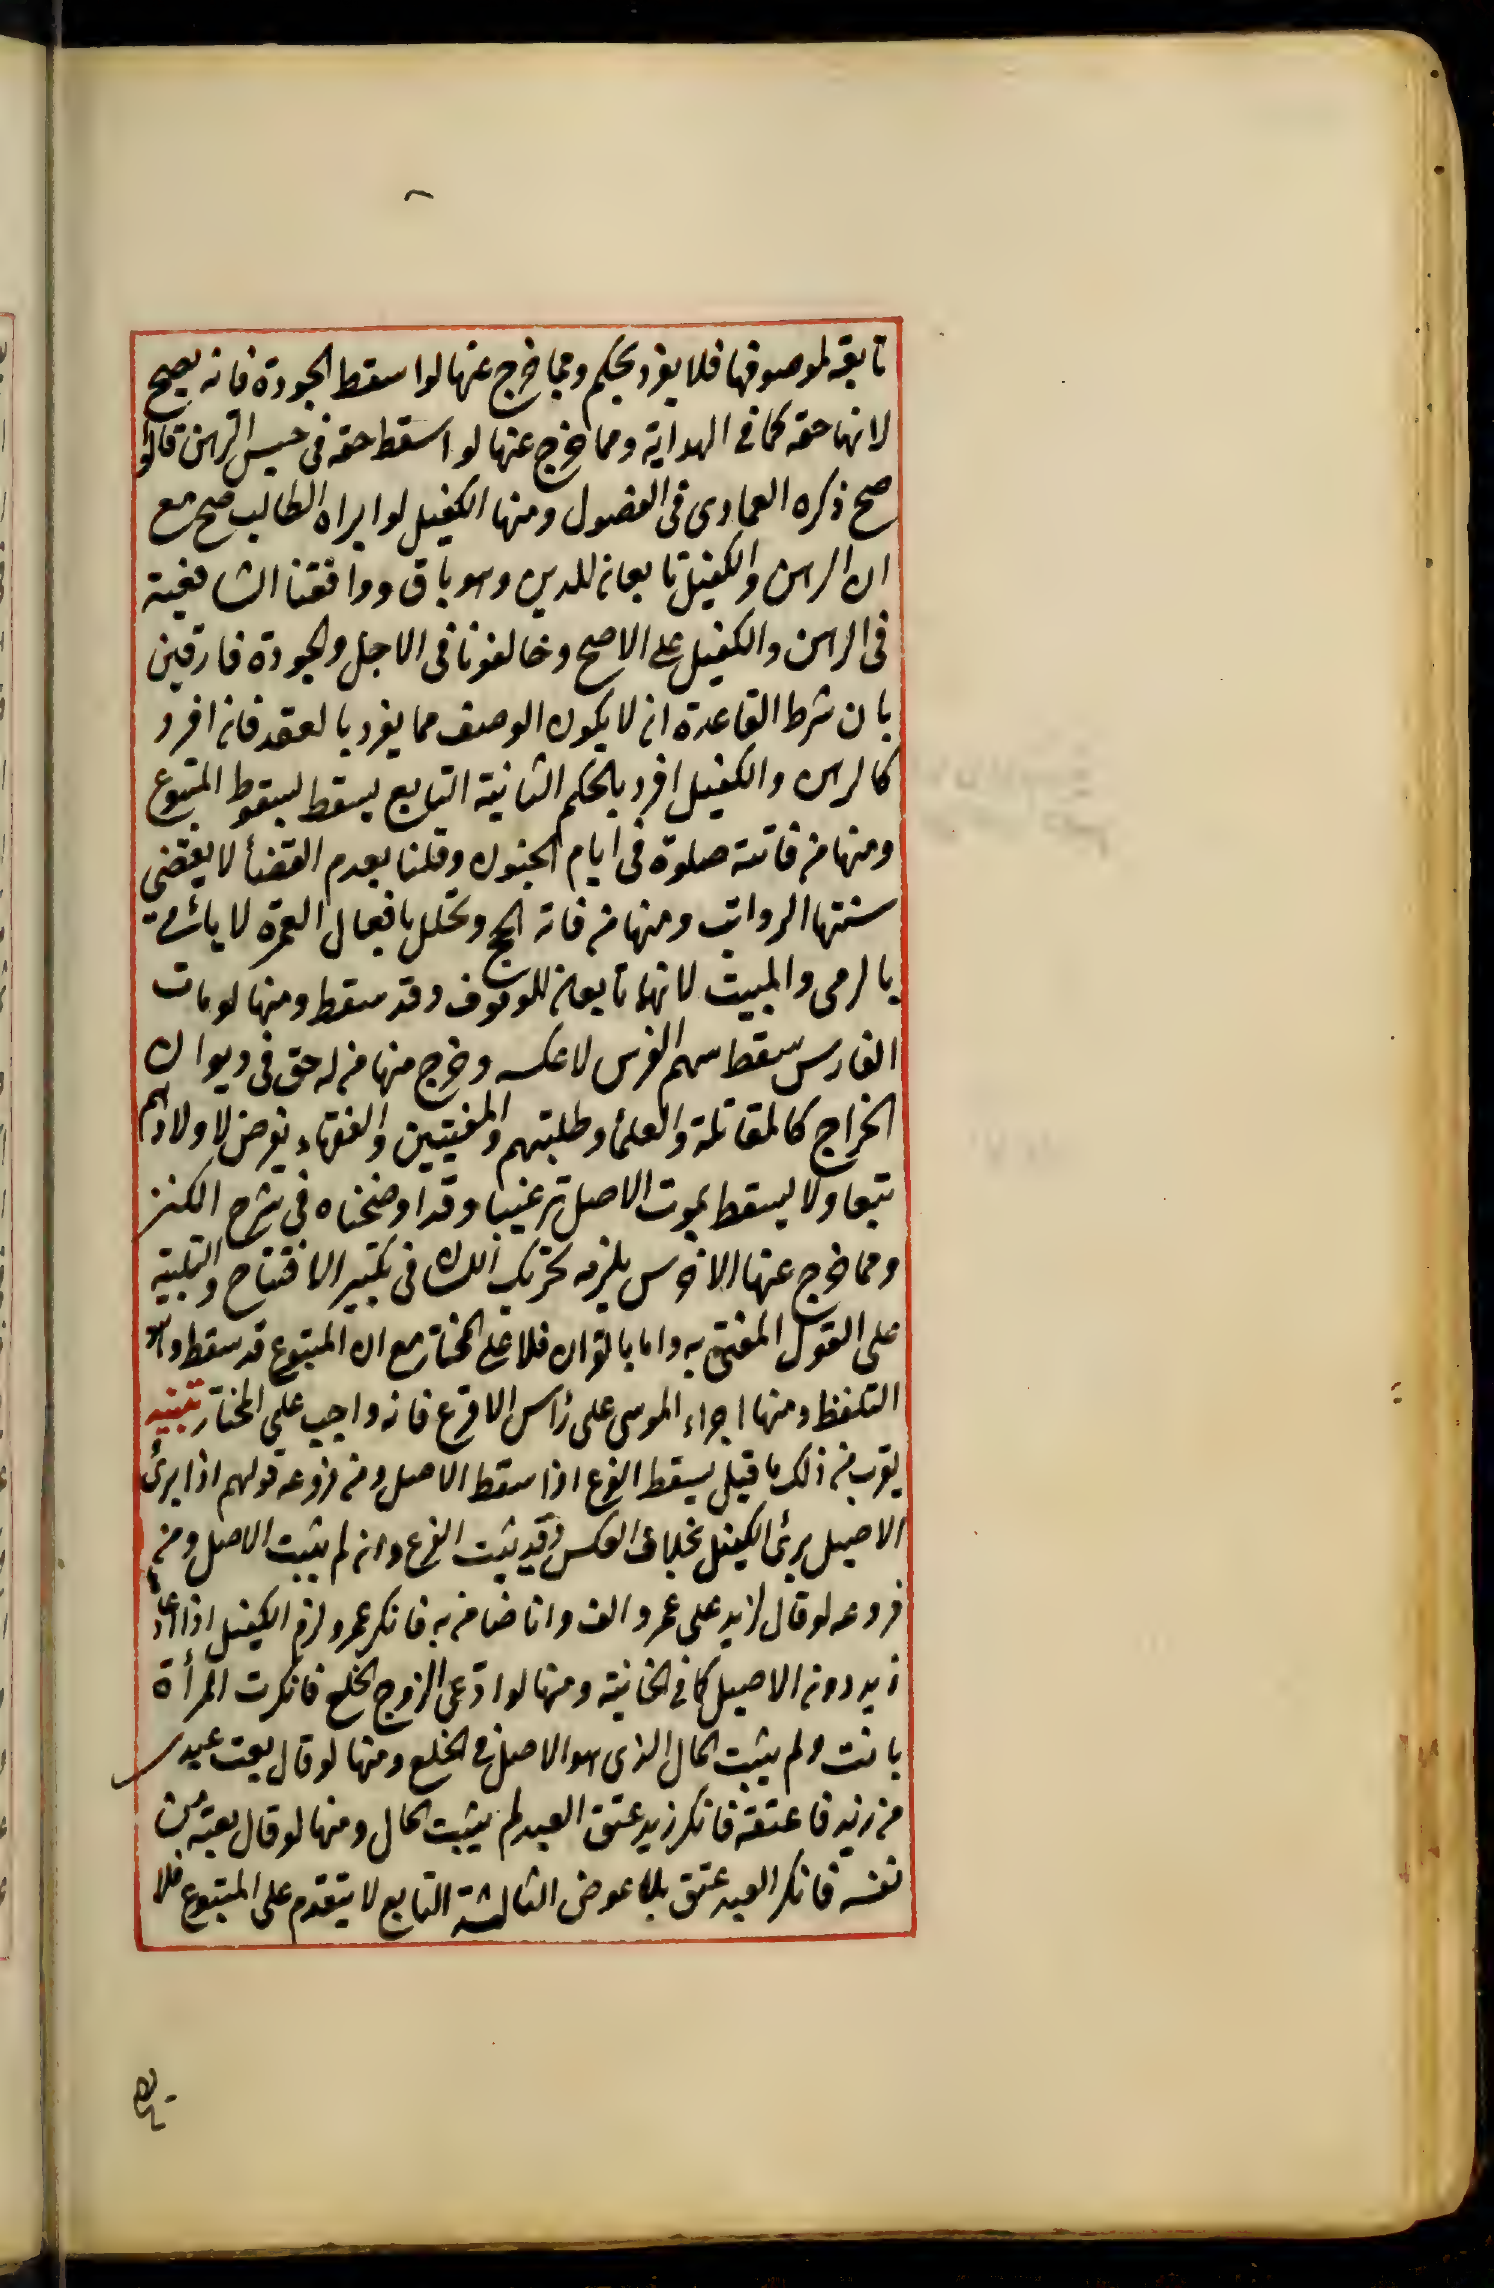 تابعة لموصوفها فلا يفرد بحكم ومما خرج عنها لو اسقط الجودة فانه يصح
لانها حقه كما فى الهداية ومما خرج عنها لو اسقط حقه فى حبس الرهن قالوا
صح ذكره العمادى فى الفصول ومنها الكفيل لو ابراه الطالب صح مع
ان الرهن والكفيل تابعان للدين وهو باق ووافقنا الشافعية
فى الرهن والكفيل على الاصح وخالفونا فى الاجل والجودة فارقين
بان شرط القاعدة ان لا يكون الوصف مما يفرد بالعقد فان افرد
كالرهن والكفيل افرد بالحكم الثانية التابع يسقط بسقوط المتبوع
ومنها من فاتته صلوة فى ايام الجنون وقلنا بعدم القضأ لا يقضى
سننها الرواتب ومنها من فاته الحج وتحلل بافعال العمرة لا ياتى
بالرمى والمبيت لانهما تابعان للوقوف وقد سقط ومنها لو مات
الفارس سقط سهم الفرس لا عكسه وخرج منها من له حق فى ديوان
الخراج كالمقاتلة والعلمأ وطلبتهم والمفتيين والفقهاء يفرض لاولادهم
تبعا ولا يسقط بموت الاصل ترغيبا وقد اوضحناه فى شرح الكنز
ومما خرج عنها الاخرس يلزمه تحريك اللسان فى تكبير الافتتاح والتلبية
على القول المفتى به واما بالقران فلا على المختار مع ان المتبوع قد سقط وهو
التلفظ ومنها اجراء الموسى على رأس الاقرع فانه واجب على المختار تنبيه
يقرب من ذلك ما قيل يسقط الفرع اذا سقط الاصل ومن فروعه قولهم اذا برئ
الاصيل برئ الكفيل بخلاف العكس وقد يثبت الفرع وان لم يثبت الاصل ومن
فروعه لو قال لزيد على عمرو الف وانا ضامن به فانكر عمرو لزم الكفيل اذا ادعا
زيد دون الاصيل كما فى الخانية ومنها لو ادّعى الزوج الخلع فانكرت المرأة
بانت ولم يثبت المال الذى هو الاصل فى الخلع ومنها لو قال بعت عبدى
من زيد فاعتقه فانكر زيد عتق العبد ولم يثبت المال ومنها لو قال بعته من
نفسه فانكر العبد عتق بلا عوض الثالثة التابع لا يتقدم على المتبوع فلا